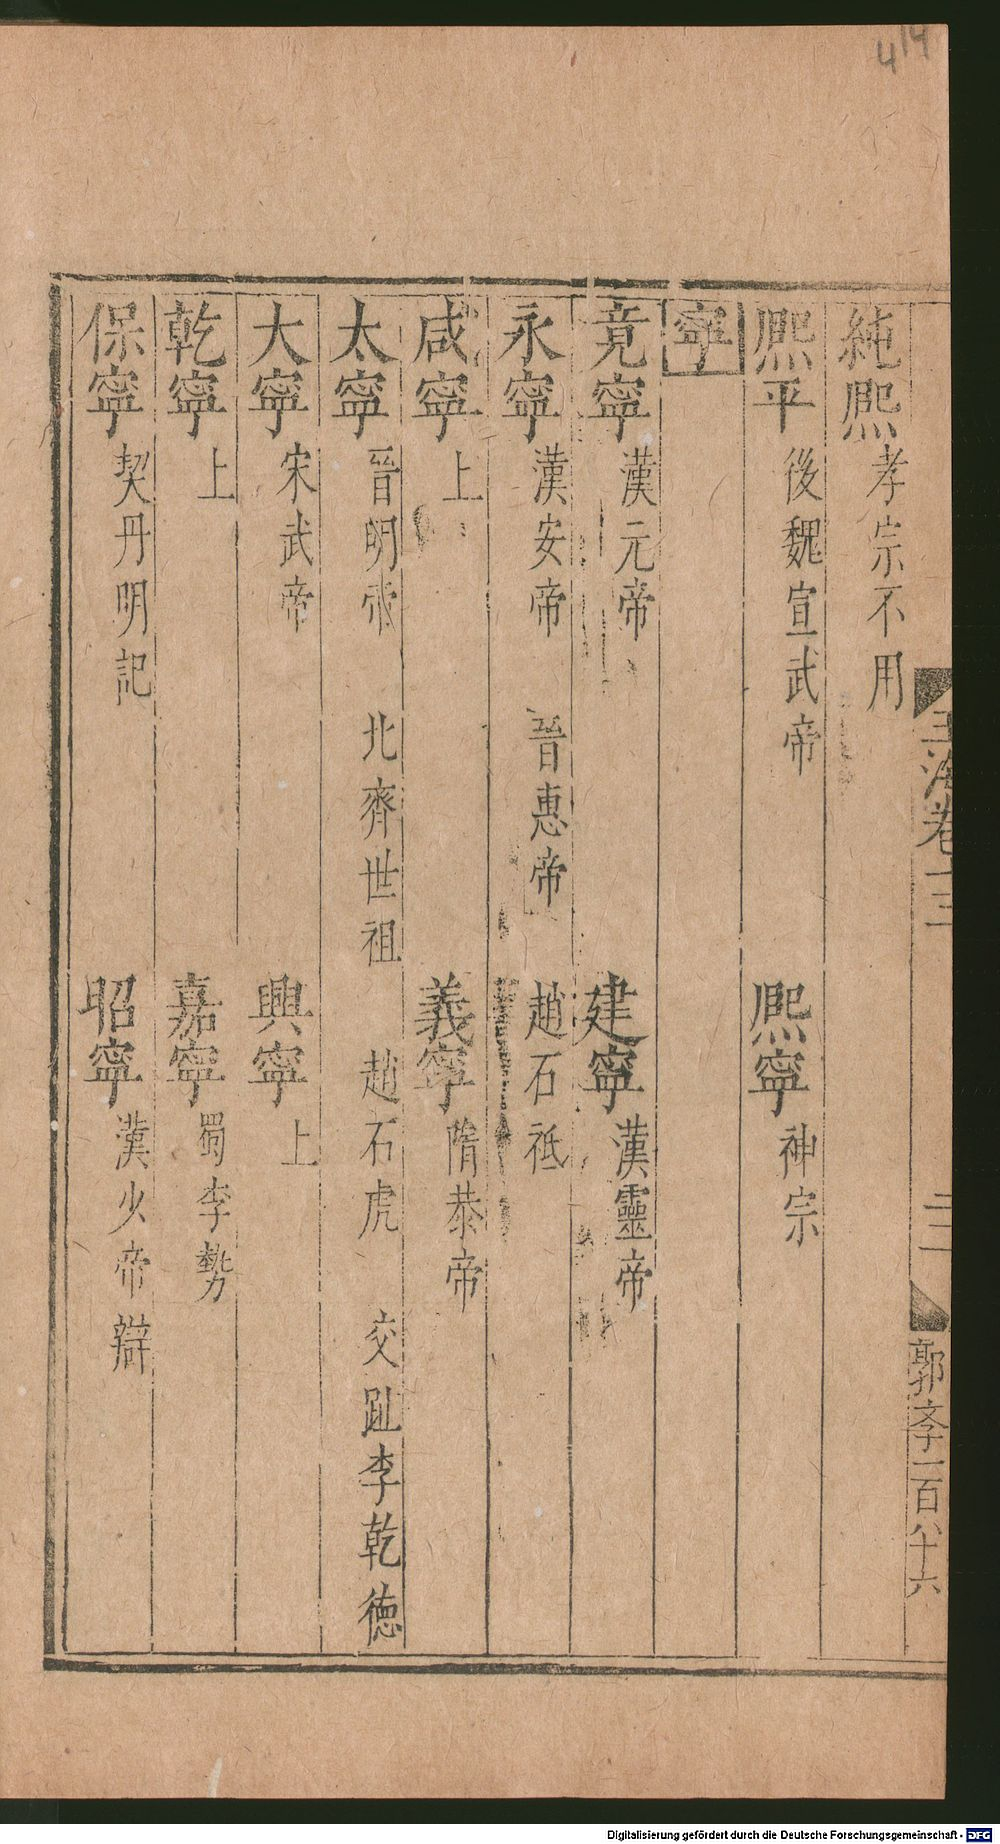 414
純熙孝宗不用
熙平後魏宣武帝 熙寧神宗
寧
竟寧漢元帝 建寧漢靈帝
永寧漢安帝 晉惠帝 趙石祗
咸寧上 義寧隋恭帝
太寧晉明帝 北齊世祖 趙石虎 交趾李乾德
大寧宋武帝 興寧上
乾寧上 嘉寧蜀李勢
保寧契丹明記 昭寧漢少帝辯
玉海卷十三
二一
一百八十六
Digitalisierung gefördert durch die Deutsche Forschungsgemeinschaft - DFG